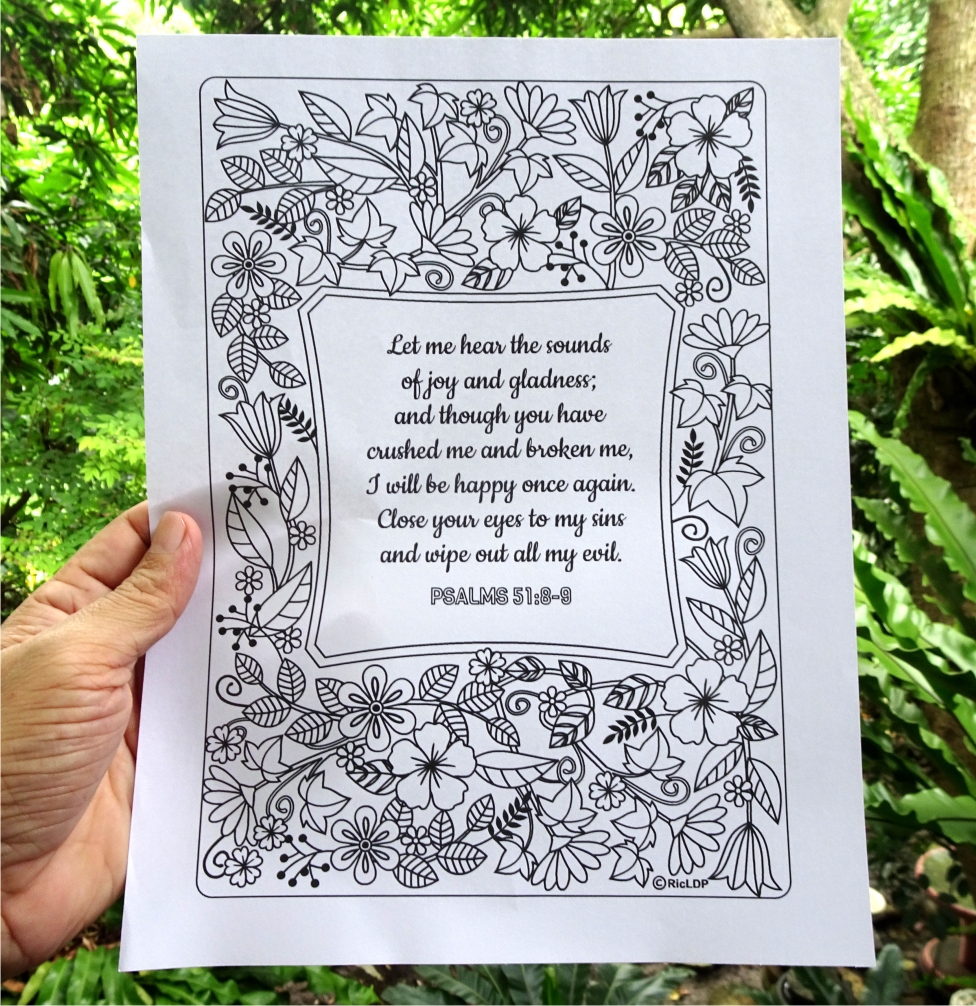 Let me hear the sounds
of joy and gladness;
and though you have
crushed me and broken me,
I will be happy once again.
Close your eyes to my sins
and wipe out all my evil.
PSALMS 51:8-9
©RicLDP